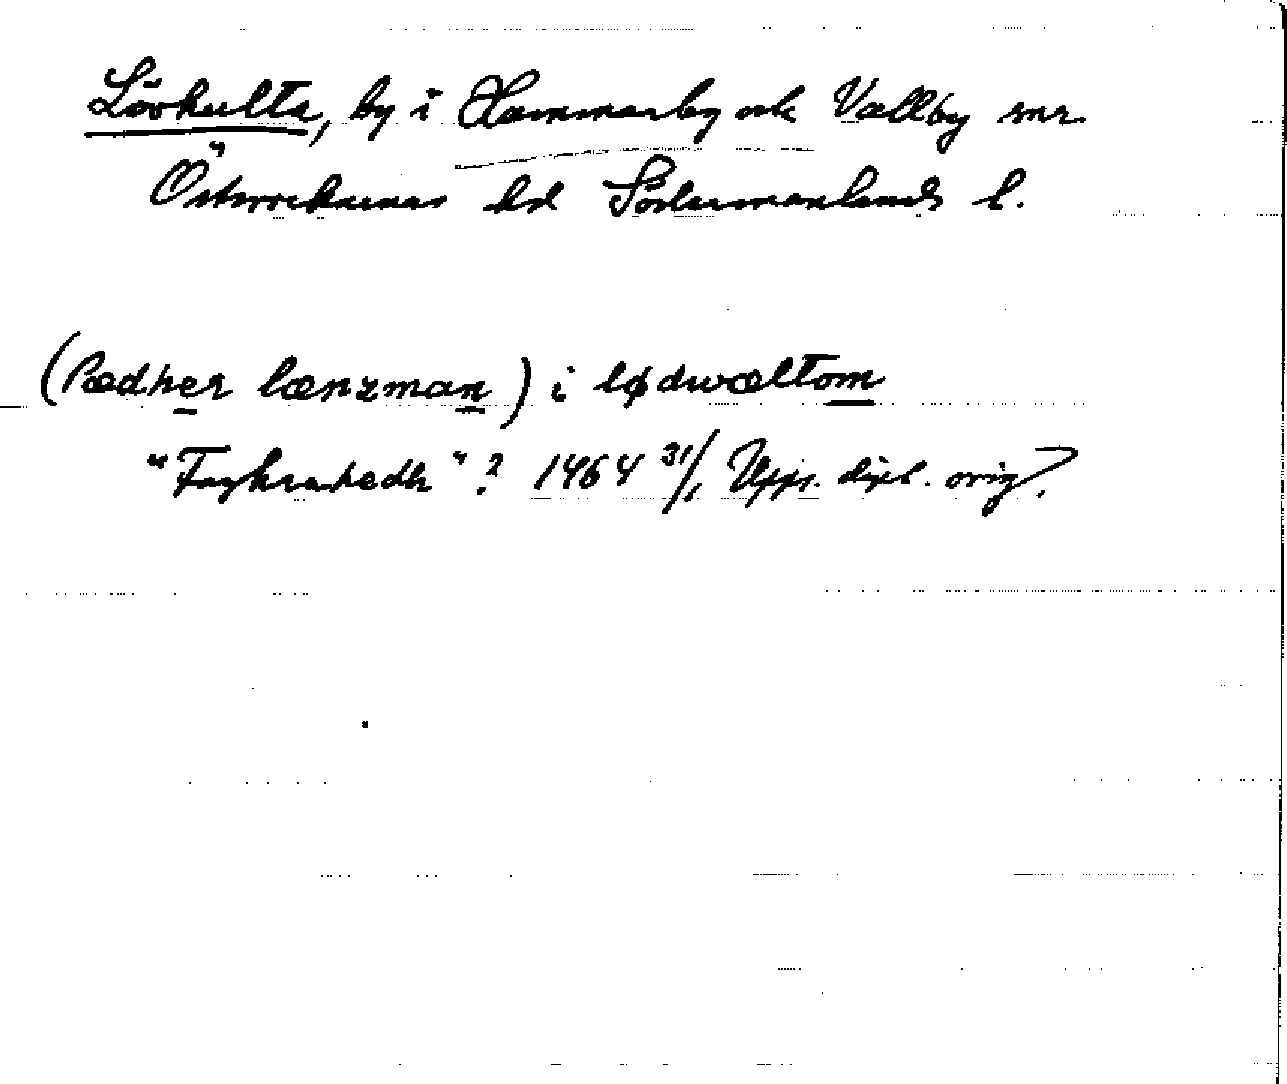 Lövhulta, by i Hammarby och Vallby snr.
Österrekarnes hd Södermanlands l.
(Pædher lænzman) i lødwæltom
1464 31/1 Upps. dipl. orig?